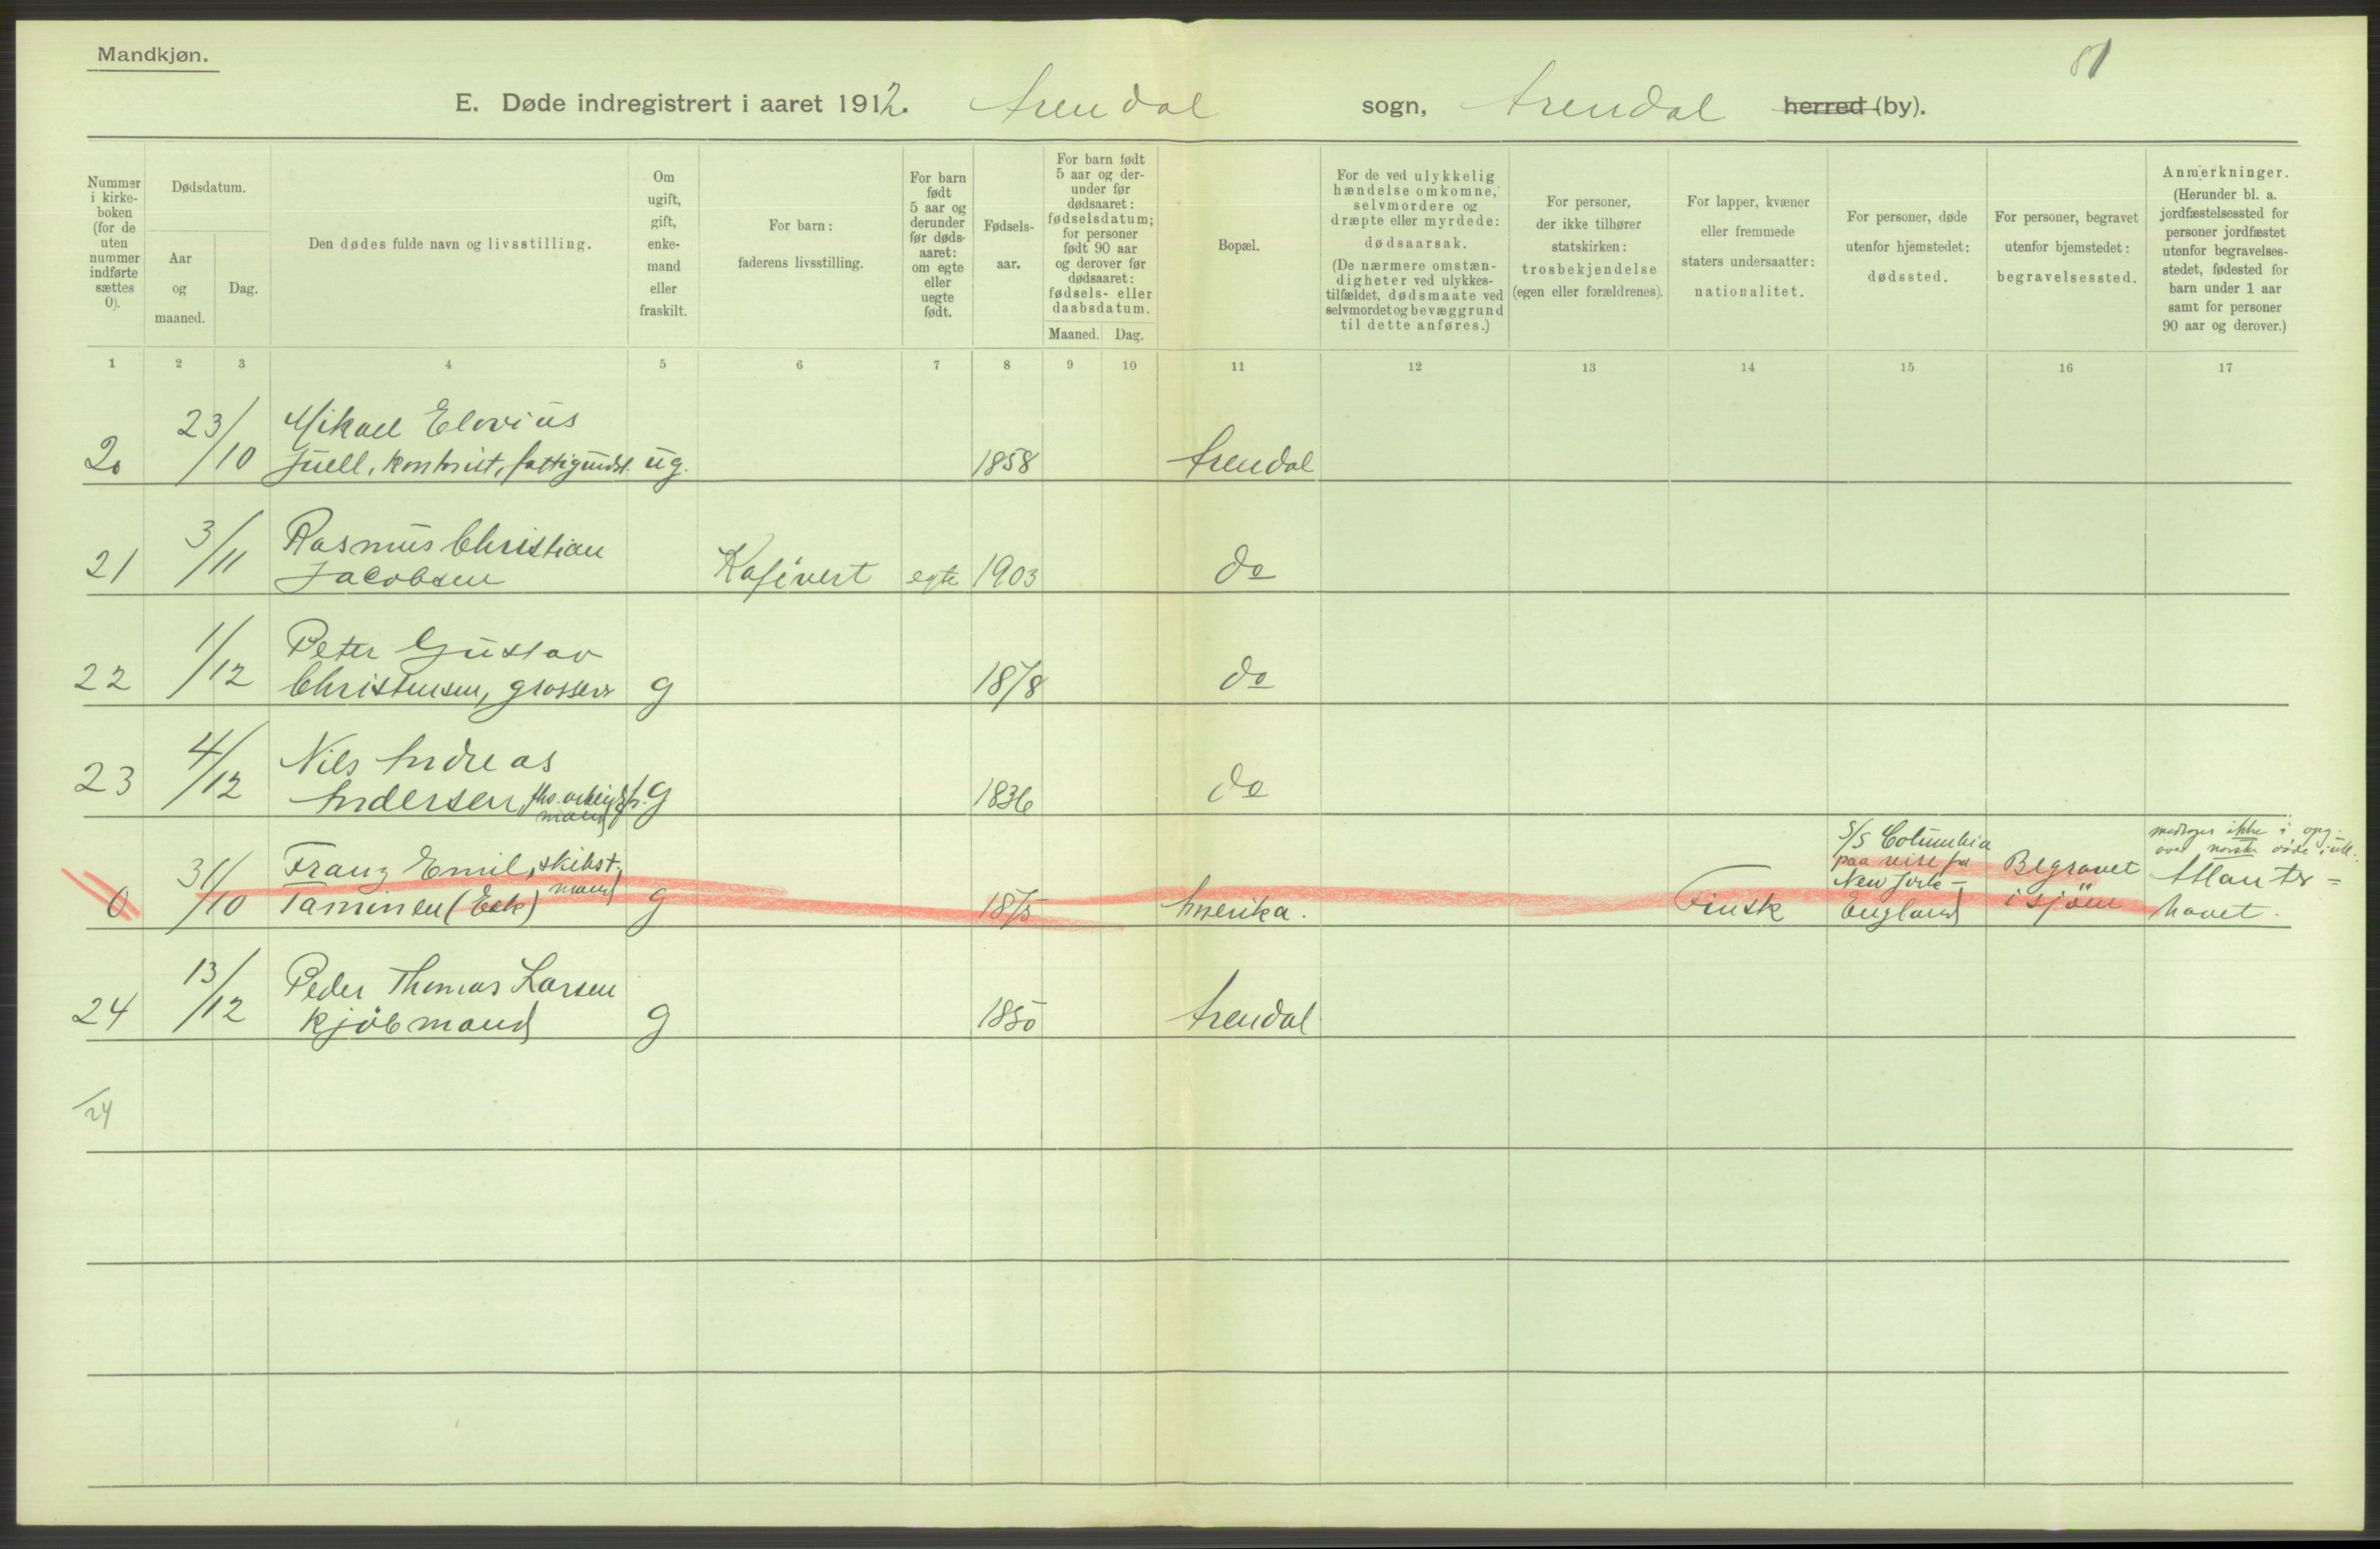 Mandkjøn.
81
E. Døde indregistrert i aaret 1912. Arendal sogn, Arendal herred (by).
Nummer i kirke-boken (for de uten nummer indførte sættes 0).
Dødsdatum.
Aar og maaned.
Dag.
Den dødes fulde navn og livsstilling.
Om ugift, gift, enke-mand eller fraskilt.
For barn: faderens livsstilling.
For barn født 5 aar og derunder før døds-aaret: om egte eller uegte født.
Fødsels-aar.
For barn født 5 aar og der-under før dødsaaret: fødselsdatum; for personer født 90 aar og derover før dødsaaret: fødsels- eller daabsdatum.
Maaned. Dag.
Bopæl.
For de ved ulykkelig hændelse omkomne, selvmordere og dræpte eller myrdede: dødsaarsak. (De nærmere omstæn-digheter ved ulykkes-tilfældet, dødsmaate ved selvmordet og bevæggrund til dette anføres.)
For personer, der ikke tilhører statskirken: trosbekjendelse (egen eller forældrenes).
For lapper, kvæner eller fremmede staters undersaatter: nationalitet.
For personer, døde utenfor hjemstedet: dødssted.
For personer, begravet utenfor hjemstedet: begravelsessted.
Anmerkninger. (Herunder bl. a. jordfæstelsessted for personer jordfæstet utenfor begravelses-stedet, fødested for barn under 1 aar samt for personer 90 aar og derover.)
1 2 3 4 5 6 7 8 9 10 11 12 13 14 15 16 17
23/10 Mikael Elovius
20 Juell, kontorist, ug. 1858 Arendal
3/11 Rasmus Christian
21 Jacobsen Kafévert egte 1903 do
1/12 Peter Gustav
22 Christensen, grosserer g 1878 do
4/12 Nils Andreas
23 Andersen, g 1836 do
mand
31/10 Franz Emil, skibst. mand
0 Taminen (Eek) g 1875 Amerika. Finsk
S/S Columbia
paa reise fra
New York –
England
Begravet
i sjöen
medtages ikke i opg.
over norske døde i utl.
Atlanter=
havet.
13/12 Peder Thomas Larsen
24 kjöbmand g 1850 Arendal
24